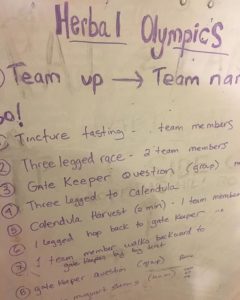 Herbal Olympics
Team up → Team nam
Go!
1 Tincture tasting - team members
2 Three legged race - 2 team members
3 Gate Keeper Question (group)
4 Three legged to Calendula
5 Calendula Harvest (2 min) - 1 team mem
6 1 legged hop back to gate keeper
7 1 team member walks backward to
gate keeper
8 gate keeper question (group)